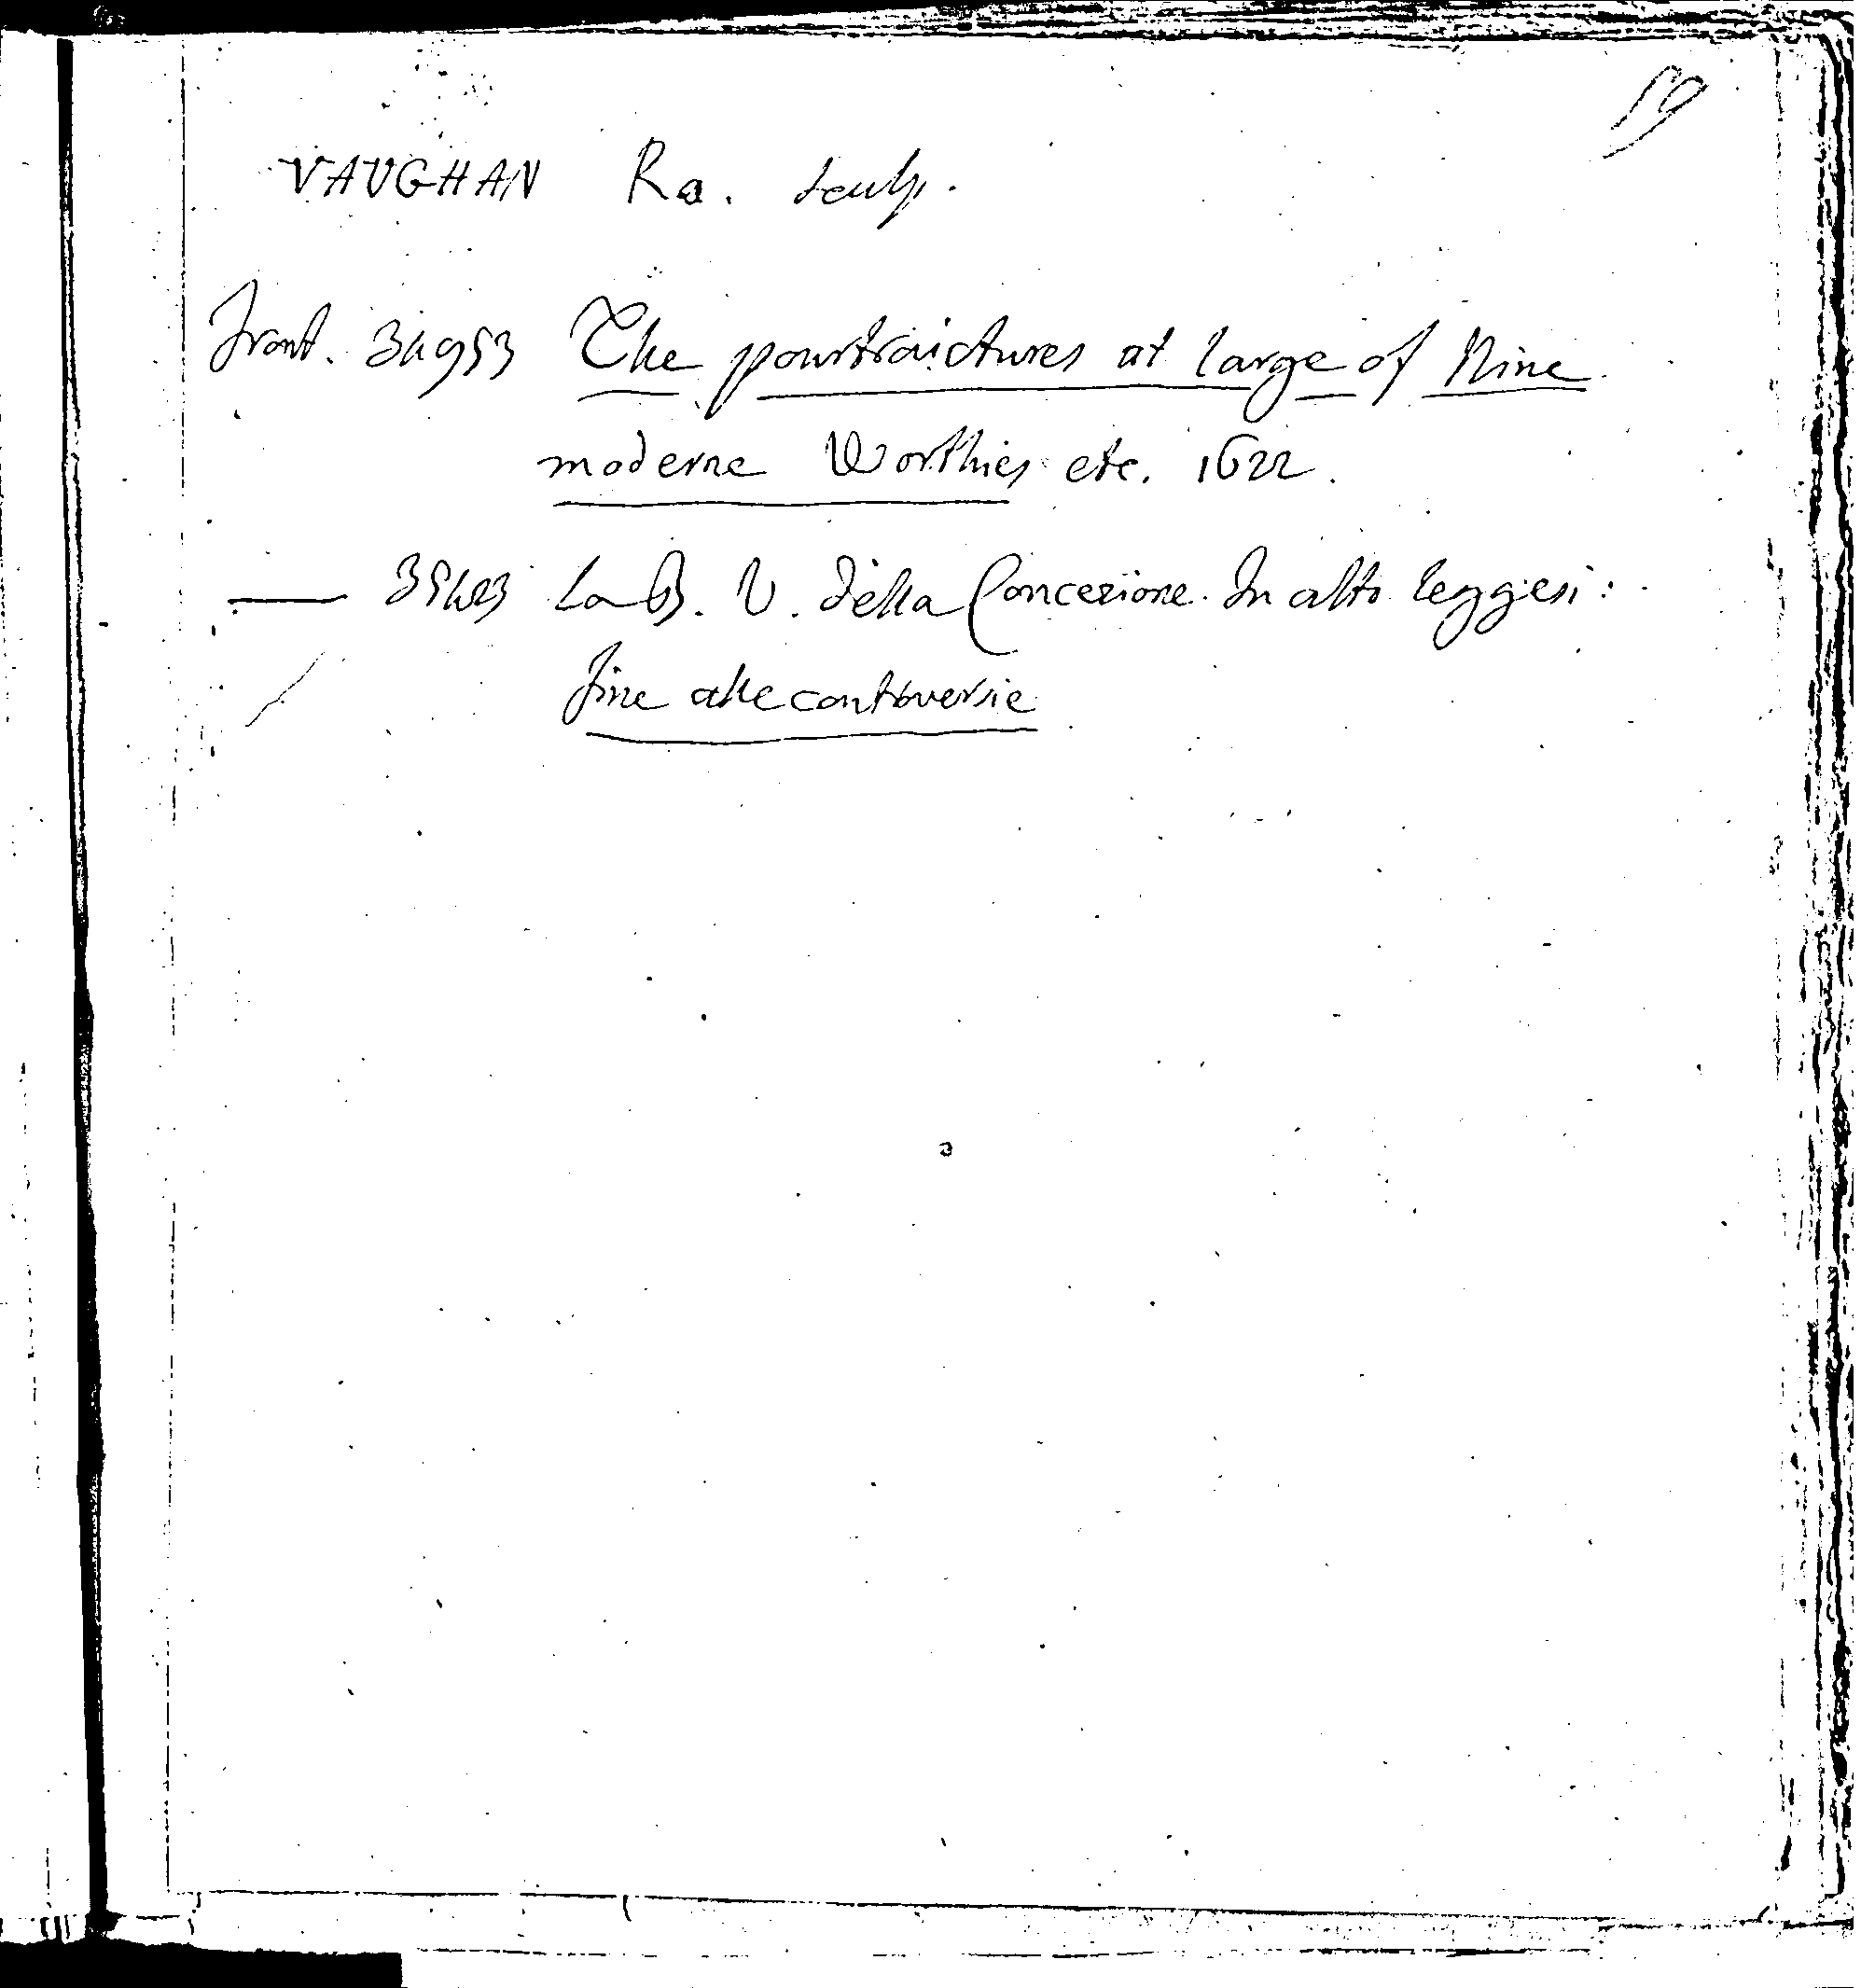 59
VAUGHAN Ra. sculp.
Front. 34953 The pourtraictures at large of Nine
moderne Worthies etc. 1622.
— 35423 La B. V. della Concezione. In alto leggesi:
fine alle controversie